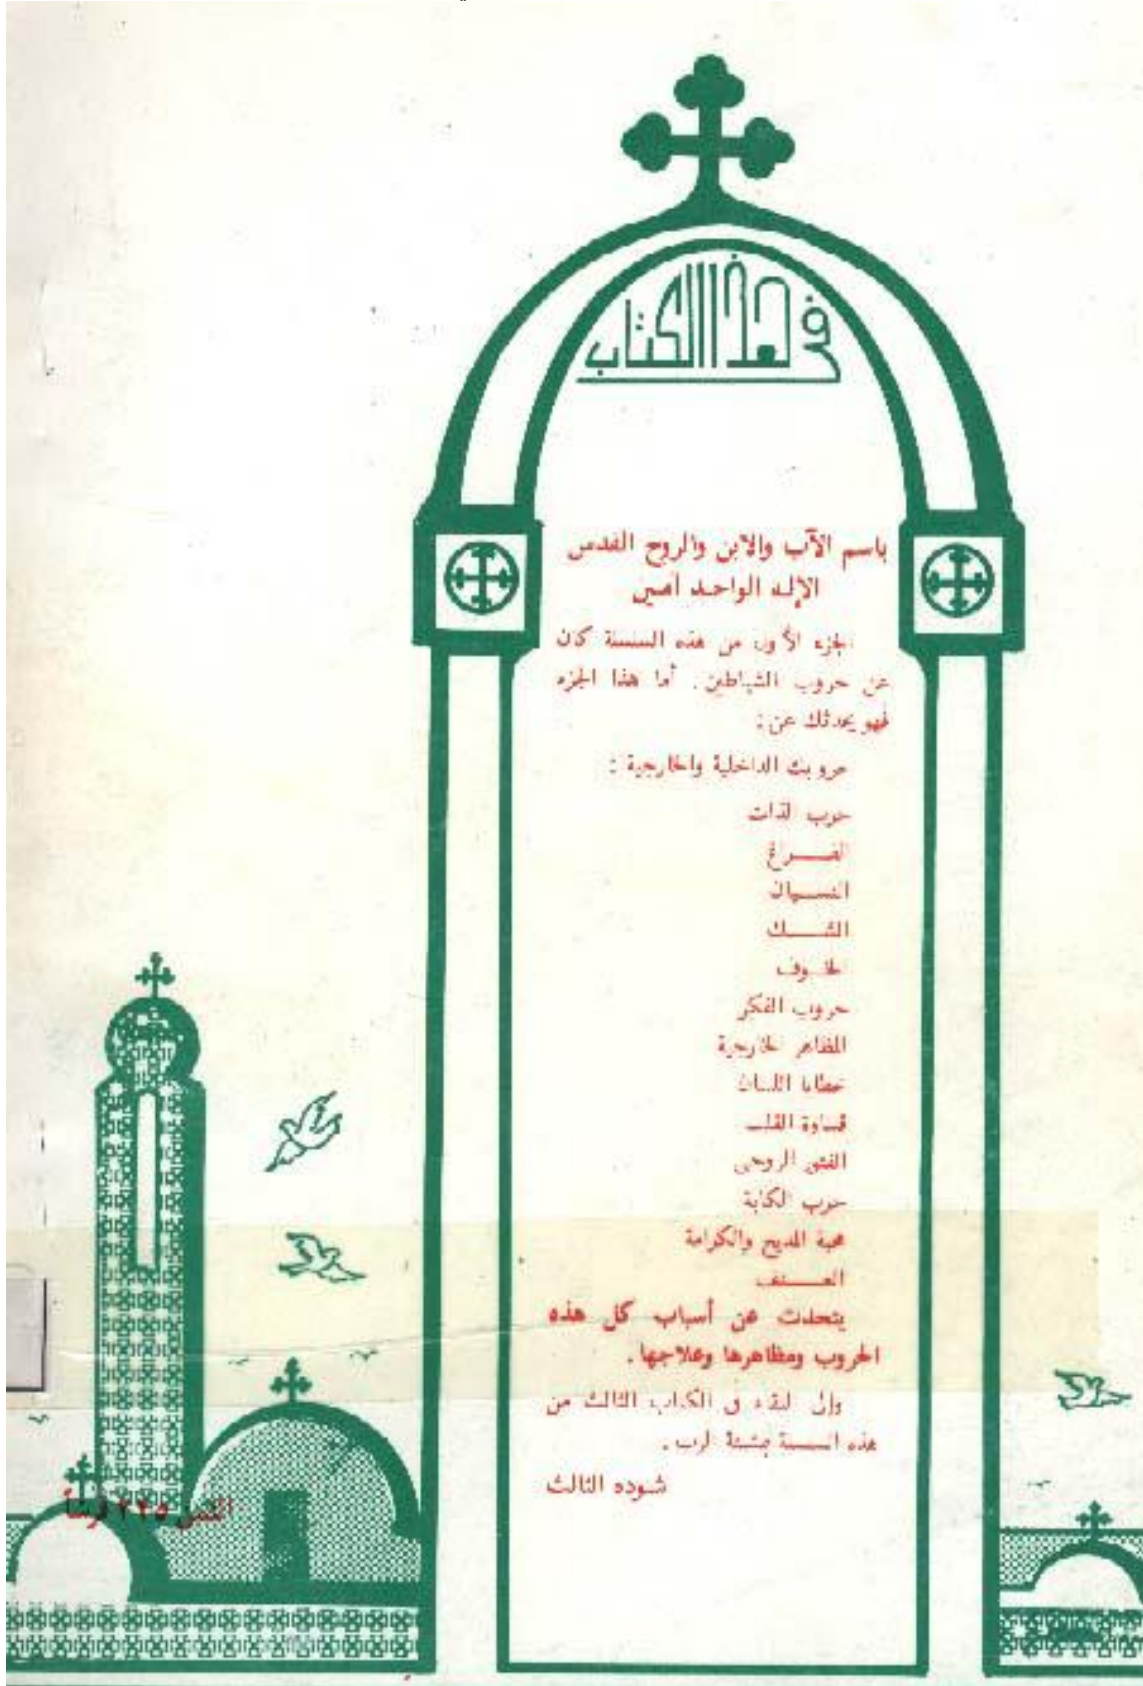 في هذا الكتاب
باسم الآب والابن والروح القدس
الإله الواحد آمين
الجزء الأول من هذه السلسلة كان
عن حروب الشياطين. أما هذا الجزء
فهو يحدثك عن:
حروبك الداخلية والخارجية :
حرب الذات
الفـــراغ
النســـيان
الشـــك
الخـوف
حروب الفكر
المظاهر الخارجية
خطايا اللسان
قساوة القلب
الفتور الروحى
حرب الكآبة
محبة المديح والكرامة
العـــنف
يتحدث عن أسباب كل هذه
الحروب ومظاهرها وعلاجها.
وإلى اللقاء فى الكتاب الثالث من
هذه السلسلة بمشيئة الرب.
شنوده الثالث
الثمن ٢٢٥ قرشاً